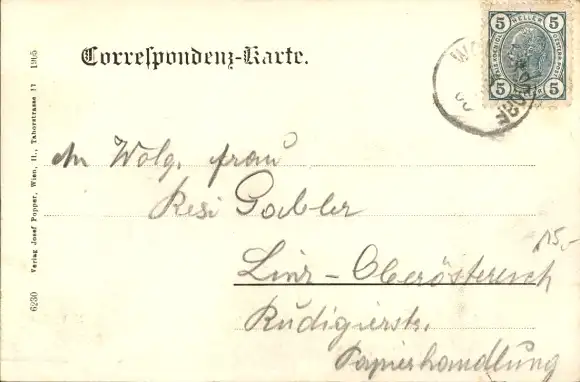 Correspondenz-Karte.
5 HELLER 5
5 5
An Wolg. Frau
Resi Gabler
15,-
Linz - Oberösterreich
Rudigierstr.
Papierhandlung
6230 Verlag Josef Popper, Wien, II., Taborstrasse 11 1905